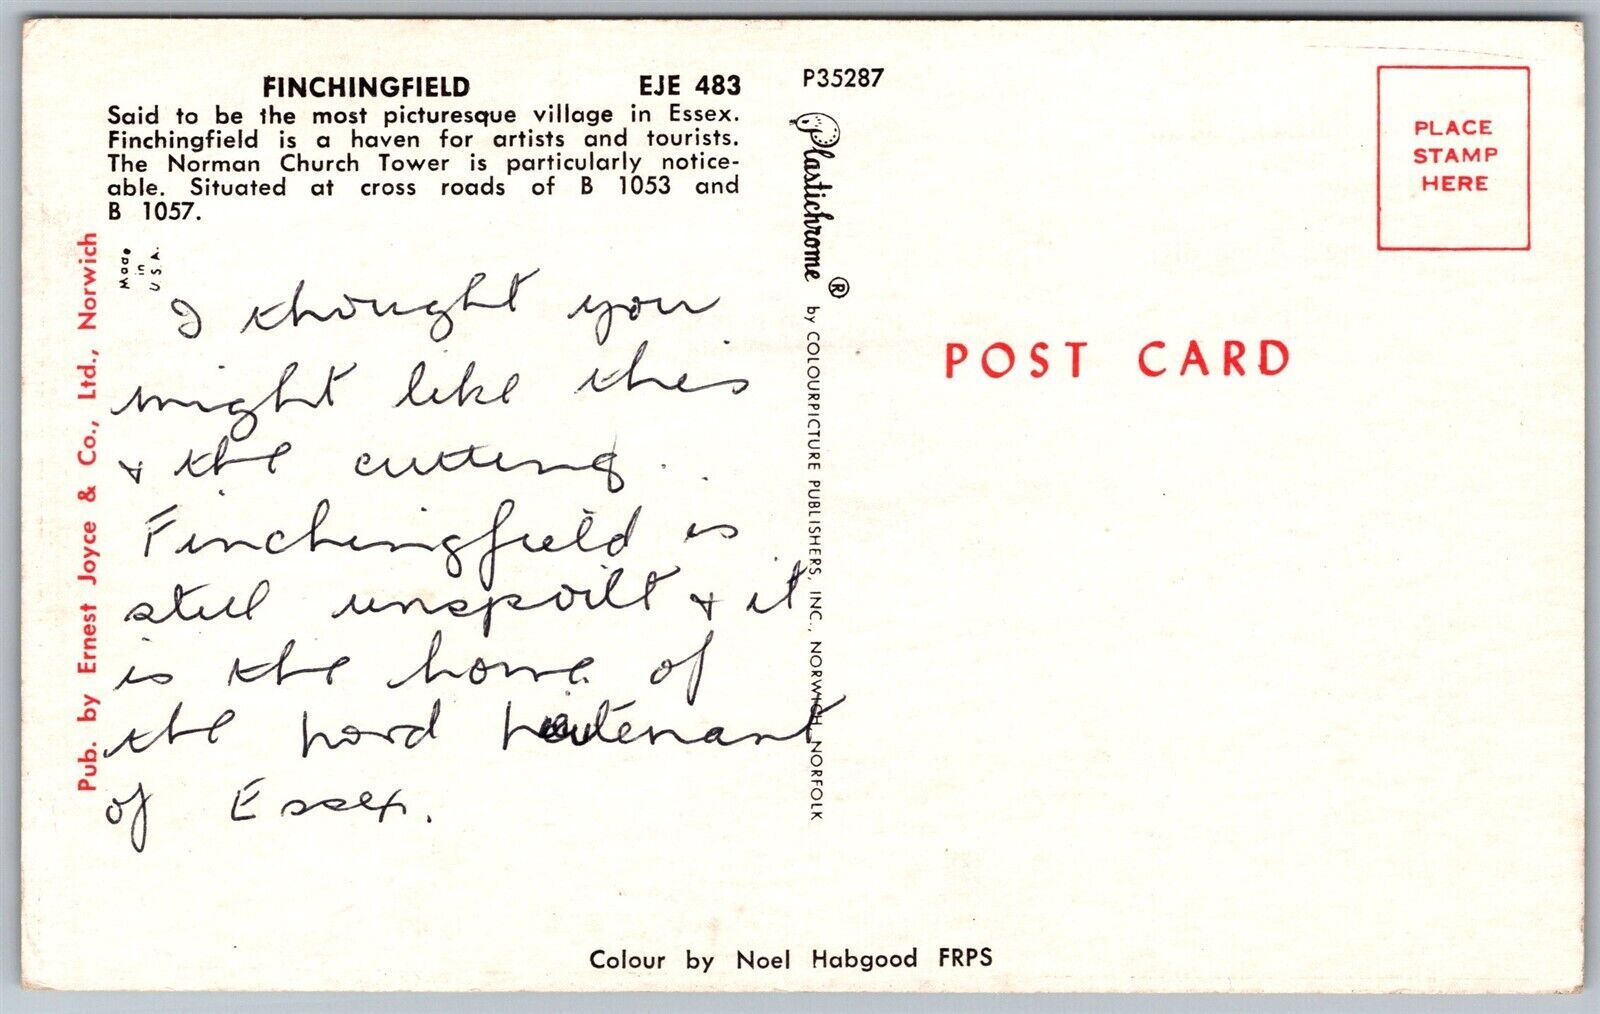 FINCHINGFIELD EJE 483
Said to be the most picturesque village in Essex.
Finchingfield is a haven for artists and tourists.
The Norman Church Tower is particularly notice-
able. Situated at cross roads of B 1053 and
B 1057.
Made
in
U.S.A.
Pub. by Ernest Joyce & Co., Ltd., Norwich
I thought you
might like this
& the cutting.
Finchingfield is
still unspoilt & it
is the home of
the Lord Lieutenant
of Essex.
P35287
Plastichrome ® by COLOURPICTURE PUBLISHERS, INC., NORWICH, NORFOLK
PLACE
STAMP
HERE
POST CARD
Colour by Noel Habgood FRPS